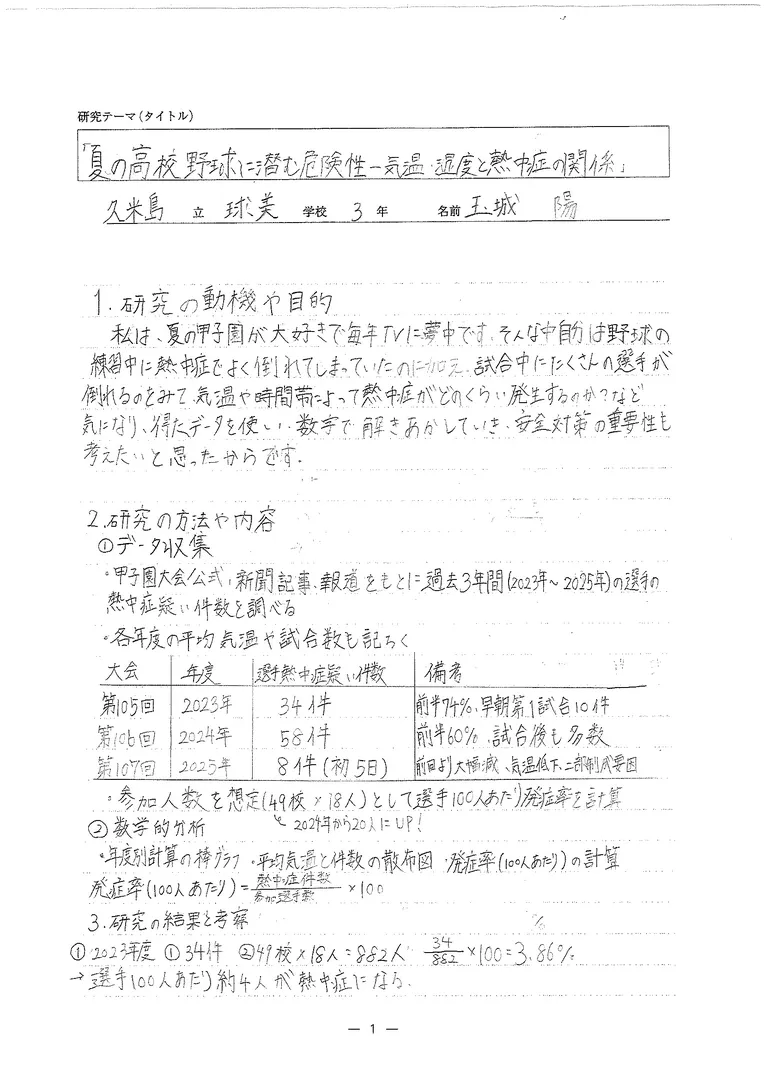 研究テーマ(タイトル)
「夏の高校野球に潜む危険性ー気温・湿度と熱中症の関係」
久米島 立 球美 学校 3 年 名前 玉城 陽
1.研究の動機や目的
私は、夏の甲子園が大好きで毎年TVに夢中です。そんな中自分は野球の
練習中に熱中症でよく倒れてしまっていたのに加え、試合中にたくさんの選手が
倒れるのをみて、気温や時間帯によって熱中症がどのくらい発生するのか?など
気になり、得たデータを使い、数字で解きあかしていき、安全対策の重要性も
考えたいと思ったからです。
2.研究の方法や内容
①データ収集
・甲子園大会公式、新聞記事、報道をもとに過去3年間(2023年~2025年)の選手の
熱中症疑い件数を調べる
・各年度の平均気温や試合数も記ろく
大会 年度 選手熱中症疑い件数 備考
第105回 2023年 34件 前半74%、早朝第1試合10件
第106回 2024年 58件 前半60%、試合後も多数
第107回 2025年 8件(初5日) 前回より大幅減、気温低下、二部制が要因
・参加人数を想定(49校×18人)として選手100人あたり発症率を計算
②数学的分析 2024年から20人にUP!
・年度別計算の棒グラフ・平均気温と件数の散布図・発症率(100人あたり)の計算
発症率(100人あたり)=熱中症件数/参加選手数×100
3.研究の結果と考察
①2023年度 ①34件 ②49校×18人=882人 34/882×100=3.86%
→選手100人あたり約4人が熱中症になる。
— 1 —